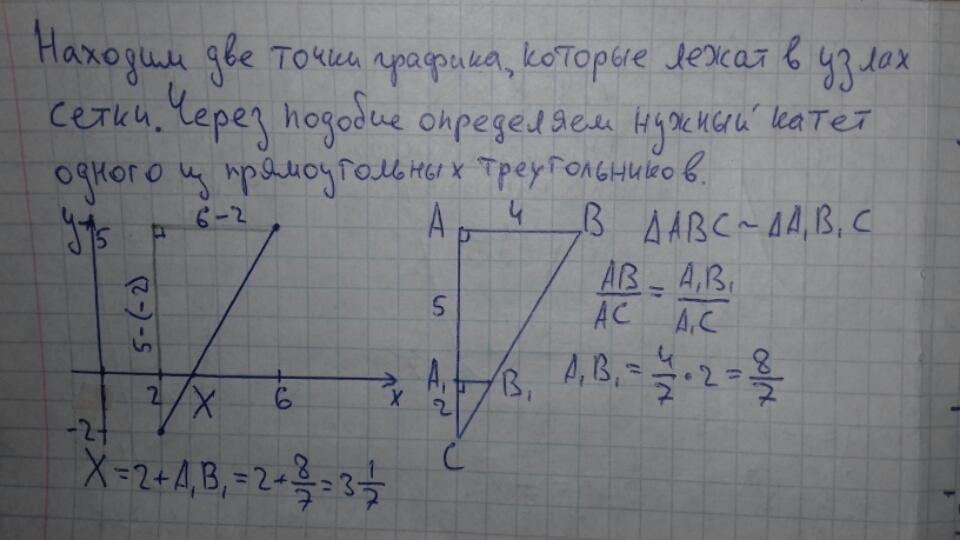 Находим две точки графика, которые лежат в узлах
сетки. Через подобие определяем нужный катет
одного из прямоугольных треугольников.
y
5
6-2
5-(-2)
2
X
6
x
-2
A
4
B
5
A₁
B₁
2
C
ΔABC ~ ΔA₁B₁C
AB/AC = A₁B₁/A₁C
A₁B₁ = 4/7 · 2 = 8/7
X = 2 + A₁B₁ = 2 + 8/7 = 3 1/7